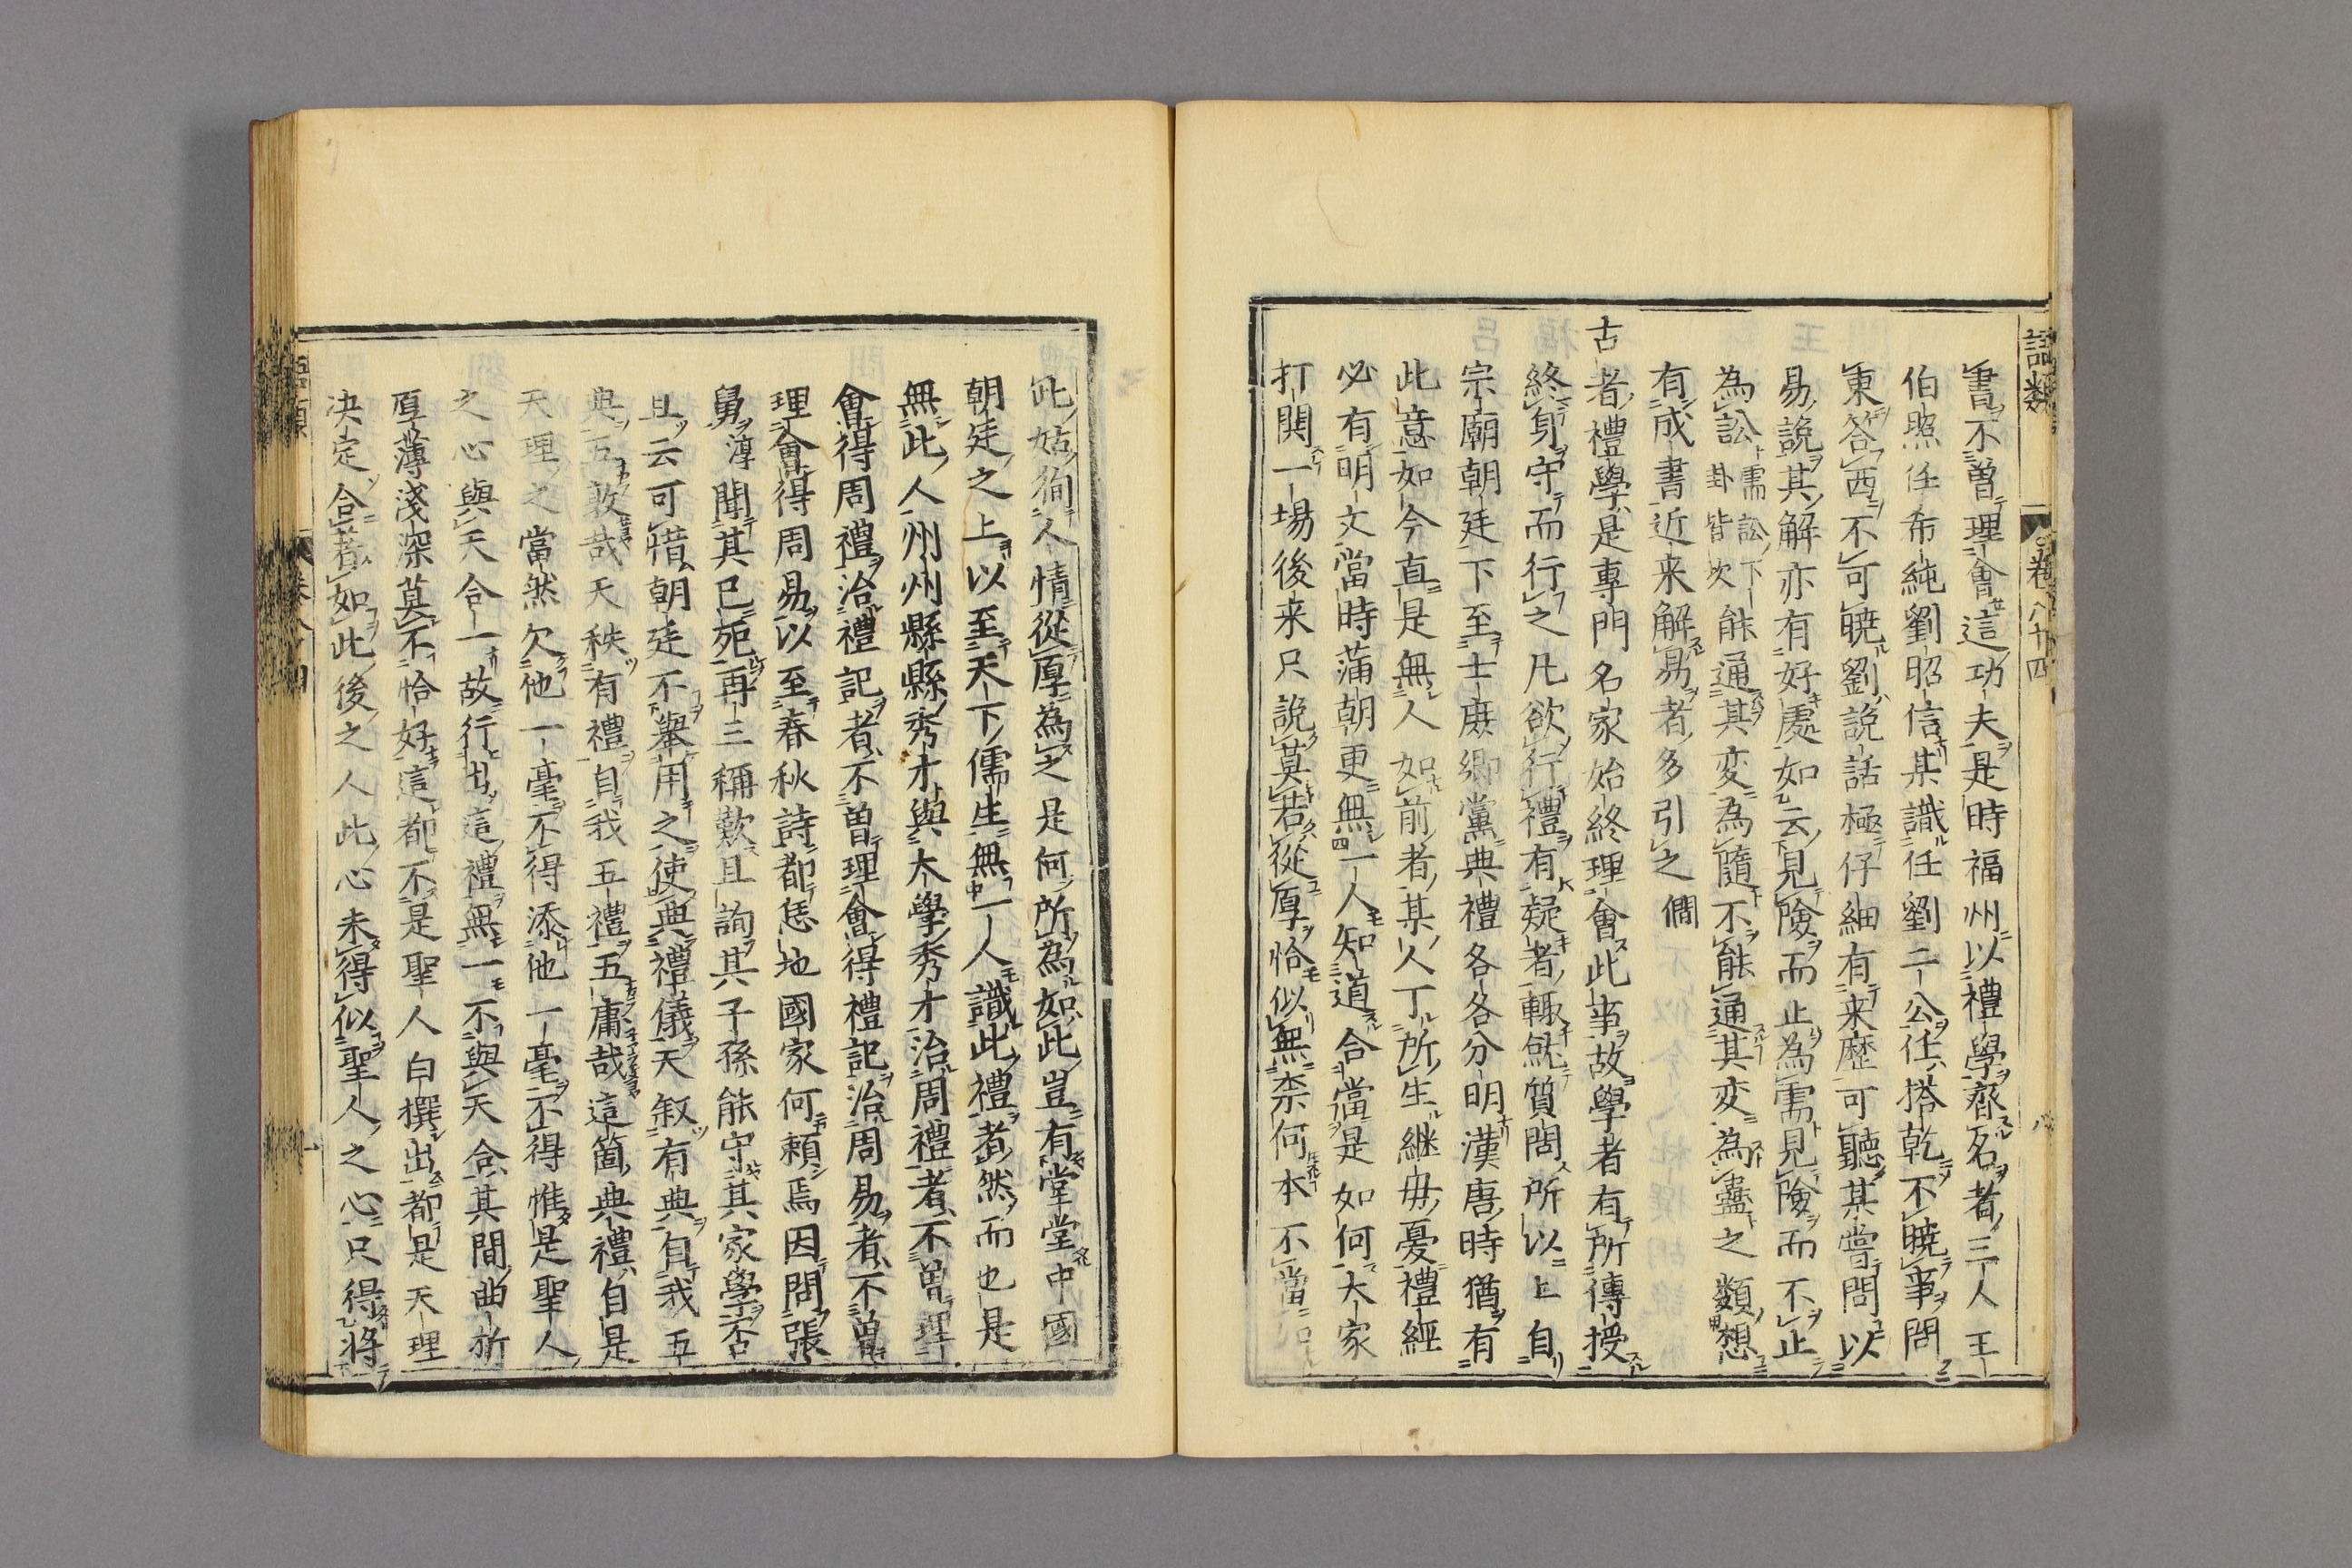 語類
卷八十四
八
書不曾理會這功夫是時福州以禮學齊名者三人王
伯照任希純劉昭信某識任劉二公任搭乾不曉事問
東答西不可曉劉說話極仔細有来歷可聽其嘗問以
易說其解亦有好處如云見險而止為需見險而不止
為訟需訟下卦皆坎能通其変為隨不能通其変為蠱之類想
有成書近来解易者多引之 㒓
古者禮學是專門名家始終理會此事故學者有所傳授
終身守而行之凡欲行禮有疑者輙就質問所以上自
宗廟朝廷下至士庶鄉黨典禮各各分明漢唐時猶有
此意如今直是無人如前者某人丁所生継母憂禮經
必有明文當時滿朝更無一人知道合當是如何大家
打関一場後来只說莫若從厚恰似無柰何本不當
此姑狥人情從厚為之是何所為如此豈有堂堂中國
朝廷之上以至天下儒生無一人識此禮者然而也是
無此人州州縣縣秀才與太學秀才治周禮者不曾理
會得周禮治禮記者不曾理會得禮記治周易者不曾
理會得周易以至春秋詩都恁地國家何頼焉因問張
舅淳聞其已死再三稱歎且詢其子孫能守其家學否
且云可惜朝廷不舉用之使典禮儀天叙有典自我五
典五敦哉天秩有禮自我五禮五庸哉這箇典禮自是
天理之當然欠他一毫不得添他一毫不得惟是聖人
之心與天合一故行出這禮無一不與天合其間曲折
厚薄淺深莫不恰好這都不是聖人白撰出都是天理
决定合著如此後之人此心未得似聖人之心只得將
語類
卷八十四